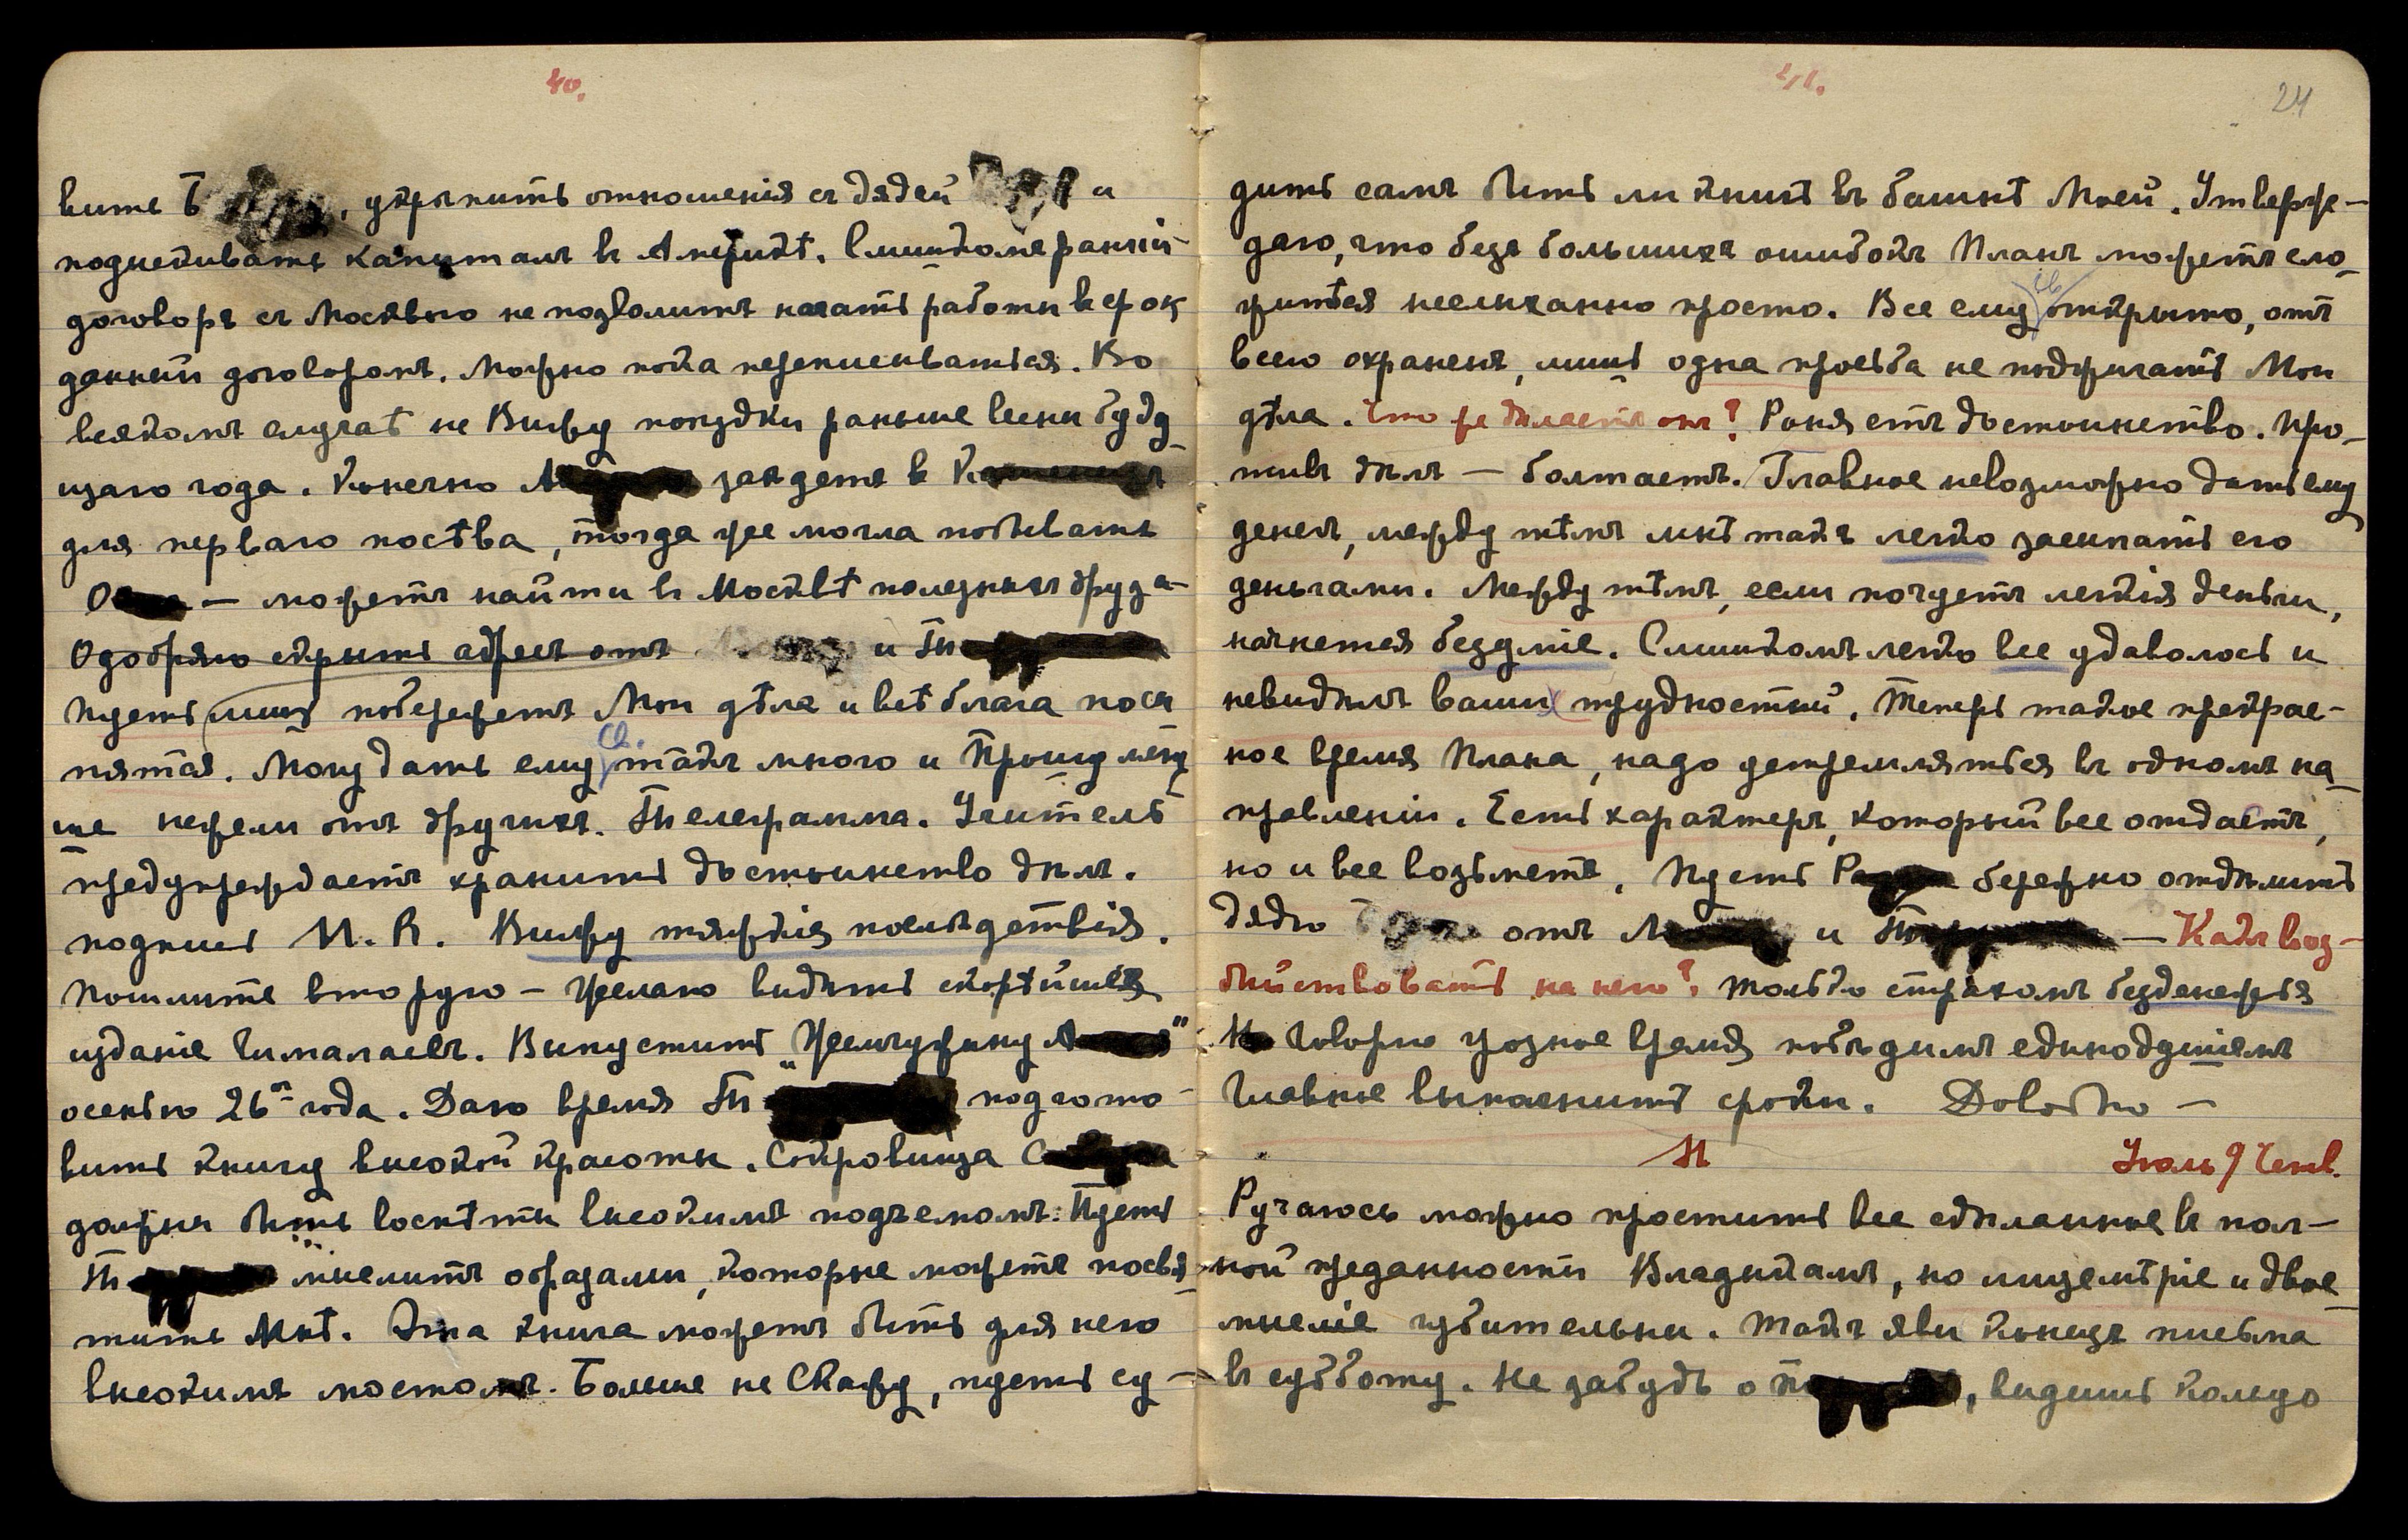 40.
вите Б , укрѣпить отношенія съ дядей и
подчеркивать капиталъ въ Америкѣ. Слишкомъ ранній
договоръ съ Москвою не позволитъ начать работы въ срок
данный договоромъ. Можно пока переписываться. Во
всякомъ случаѣ не Вижу поездки раньше весны буду-
щаго года. Конечно заѣдете в
для перваго посѣва, тогда уже могла побывать
О — можетъ найти въ Москвѣ полезныхъ друзе-
Одобряю скрыть адресъ отъ и Т
Пусть лишь побережетъ Мои дѣла и всѣ блага нося
нятся. Могу дать ему Св. такъ много и Прошу мень
ше нежели отъ другихъ. Телеграмма. Учитель
предупреждаетъ хранить достоинство дѣлъ.
подпись М. R. Вижу тяжкія последствія.
Пошлите вторую — Желаю видѣть скорѣйшее
изданіе Гималаевъ. Выпустить „Жемчужину А "
осенью 26го года. Даю время Т подгото-
вить книгу высокой красоты. Сокровища С
должны быть воспѣты высокимъ подъемомъ. Пусть
Т мыслитъ образами, которые можетъ посвя-
тить Мнѣ. Эта книга можетъ быть для него
высокимъ мостомъ. Больше не Скажу, пусть су-
41.
24
дитъ самъ быть ли книгѣ въ башнѣ Моей. Утверж-
даю, что безъ большихъ ошибокъ Планъ можетъ сло-
житься неслыханно просто. Все ему Св открыто, отъ
всего охраненъ, лишь одна просьба не поджигать Мои
дѣла. Что же дѣлаетъ онъ? Роняетъ достоинство. Про-
тивъ дѣлъ — болтаетъ. Главное невозможно дать ему
денегъ, между тѣмъ мнѣ такъ легко засыпать его
деньгами. Между тѣмъ, если почуетъ легкія деньги,
начнется бездуміе. Слишкомъ легко все удавалось и
невидѣлъ вашихъ трудностей. Теперь такое прекрас-
ное время Плана, надо устремляться въ одномъ на-
правленіи. Есть характеръ, который все отдастъ,
но и все возьметъ. Пусть бережно отдѣлитъ
дядю отъ М и Т — Какъ воз-
дѣйствовать на него? Только страхомъ безденежья
Говорю грозное время побѣдимъ единодушіемъ
Главное выполнить сроки. Dolorho —
М Іюль 9 Четв.
Ручаюсь можно простить все сдѣланное в пол-
ной преданности Владыкамъ, но лицемѣріе и двое-
мысліе губительны. Такъ яви конецъ письма
въ субботу. Не забудь о , видишь кольцо